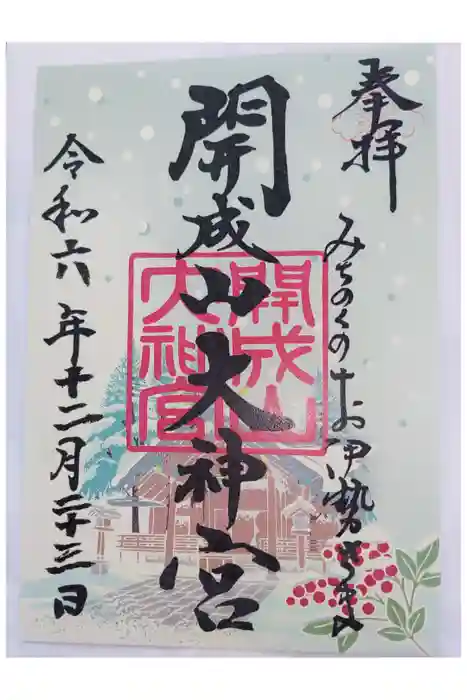 奉拝
みちのくのお伊勢さま
開成山大神宮
開成山
大神宮
令和六年十二月二十三日